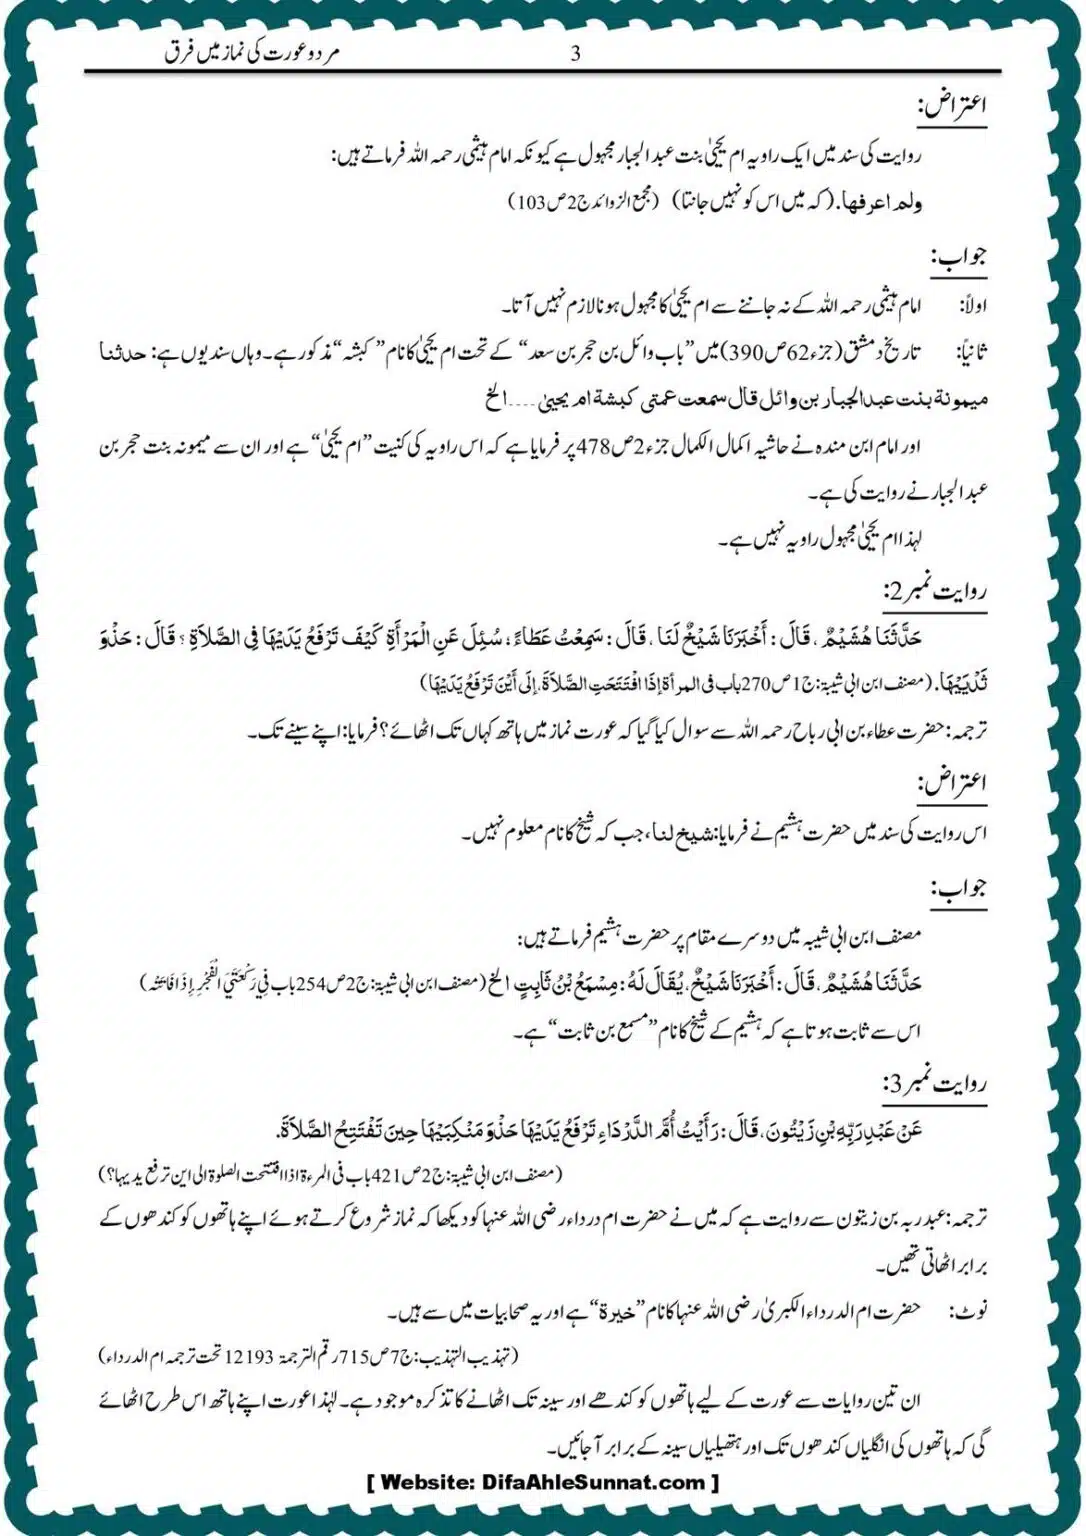 مرد و عورت کی نماز میں فرق
3
اعتراض:
روایت کی سند میں ایک راویہ ام یحییٰ بنت عبد الجبار مجہول ہے کیونکہ امام ہیثمی رحمہ اللہ فرماتے ہیں:
ولم اعرفها. (کہ میں اس کو نہیں جانتا) (مجمع الزوائد ج2ص103)
جواب:
اولاً: امام ہیثمی رحمہ اللہ کے نہ جاننے سے ام یحییٰ کا مجہول ہونا لازم نہیں آتا۔
ثانیاً: تاریخ دمشق (جزء62ص390) میں ”باب وائل بن حجر بن سعد“ کے تحت ام یحییٰ کا نام ”کبشہ“ مذکور ہے۔ وہاں سند یوں ہے: حدثنا
ميمونة بنت عبد الجبار بن وائل قال سمعت عمتى كبشة ام يحيىٰ ۔۔۔۔ الخ
اور امام ابن مندہ نے حاشیہ اکمال الکمال جزء2ص478 پر فرمایا ہے کہ اس راویہ کی کنیت ”ام یحییٰ“ ہے اور ان سے میمونہ بنت حجر بن
عبد الجبار نے روایت کی ہے۔
لہذا ام یحییٰ مجہول راویہ نہیں ہے۔
روایت نمبر2:
حَدَّثَنَا هُشَيْمٌ ، قَالَ : أَخْبَرَنَا شَيْخٌ لَنَا ، قَالَ : سَمِعْتُ عَطَاءً ؛ سُئِلَ عَنِ الْمَرْأَةِ كَيْفَ تَرْفَعُ يَدَيْهَا فِى الصَّلَاةِ ؟ قَالَ : حَذْوَ
ثَدْيَيْهَا. (مصنف ابن ابی شیبۃ: ج1ص270 باب فى المرأة إِذَا افْتَتَحَتِ الصَّلَاةَ، إِلَى أَيْنَ تَرْفَعُ يَدَيْهَا)
ترجمہ: حضرت عطاء بن ابی رباح رحمہ اللہ سے سوال کیا گیا کہ عورت نماز میں ہاتھ کہاں تک اٹھائے؟ فرمایا: اپنے سینے تک۔
اعتراض:
اس روایت کی سند میں حضرت ہشیم نے فرمایا: شيخ لنا، جب کہ شیخ کا نام معلوم نہیں۔
جواب:
مصنف ابن ابی شیبہ میں دوسرے مقام پر حضرت ہشیم فرماتے ہیں:
حَدَّثَنَا هُشَيْمٌ ، قَالَ : أَخْبَرَنَا شَيْخٌ ، يُقَالُ لَهُ : مِسْمَعُ بْنُ ثَابِتٍ الخ (مصنف ابن ابی شیبۃ: ج2ص254 باب فِي رَكْعَتَيِ الْفَجْرِ إِذَا فَاتَتْهُ)
اس سے ثابت ہوتا ہے کہ ہشیم کے شیخ کا نام ”مسمع بن ثابت“ ہے۔
روایت نمبر3:
عَنْ عَبْدِ رَبِّهِ بْنِ زَيْتُونَ ، قَالَ : رَأَيْتُ أُمَّ الدَّرْدَاءِ تَرْفَعُ يَدَيْهَا حَذْوَ مَنْكِبَيْهَا حِينَ تَفْتَتِحُ الصَّلَاةَ.
(مصنف ابن ابی شیبۃ: ج2ص421 باب فی المرءۃ اذا افتتحت الصلوۃ الی این ترفع یدیہا؟)
ترجمہ: عبد ربہ بن زیتون سے روایت ہے کہ میں نے حضرت ام درداء رضی اللہ عنہا کو دیکھا کہ نماز شروع کرتے ہوئے اپنے ہاتھوں کو کندھوں کے
برابر اٹھاتی تھیں۔
نوٹ: حضرت ام الدرداء الکبریٰ رضی اللہ عنہا کا نام ”خيرة“ ہے اور یہ صحابیات میں سے ہیں۔
(تہذیب التہذیب: ج7ص715 رقم الترجمۃ 12193 تحت ترجمہ ام الدرداء)
ان تین روایات سے عورت کے لیے ہاتھوں کو کندھے اور سینہ تک اٹھانے کا تذکرہ موجود ہے۔ لہٰذا عورت اپنے ہاتھ اس طرح اٹھائے
گی کہ ہاتھوں کی انگلیاں کندھوں تک اور ہتھیلیاں سینہ کے برابر آ جائیں۔
[ Website: DifaAhleSunnat.com ]